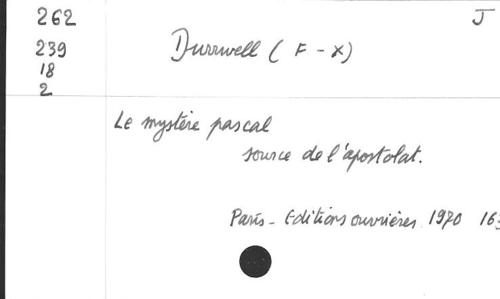 262 J
239 Durrwell ( F - X )
18
2
Le mystère pascal
source de l'apostolat.
Paris - Editions ouvrières 1970 163